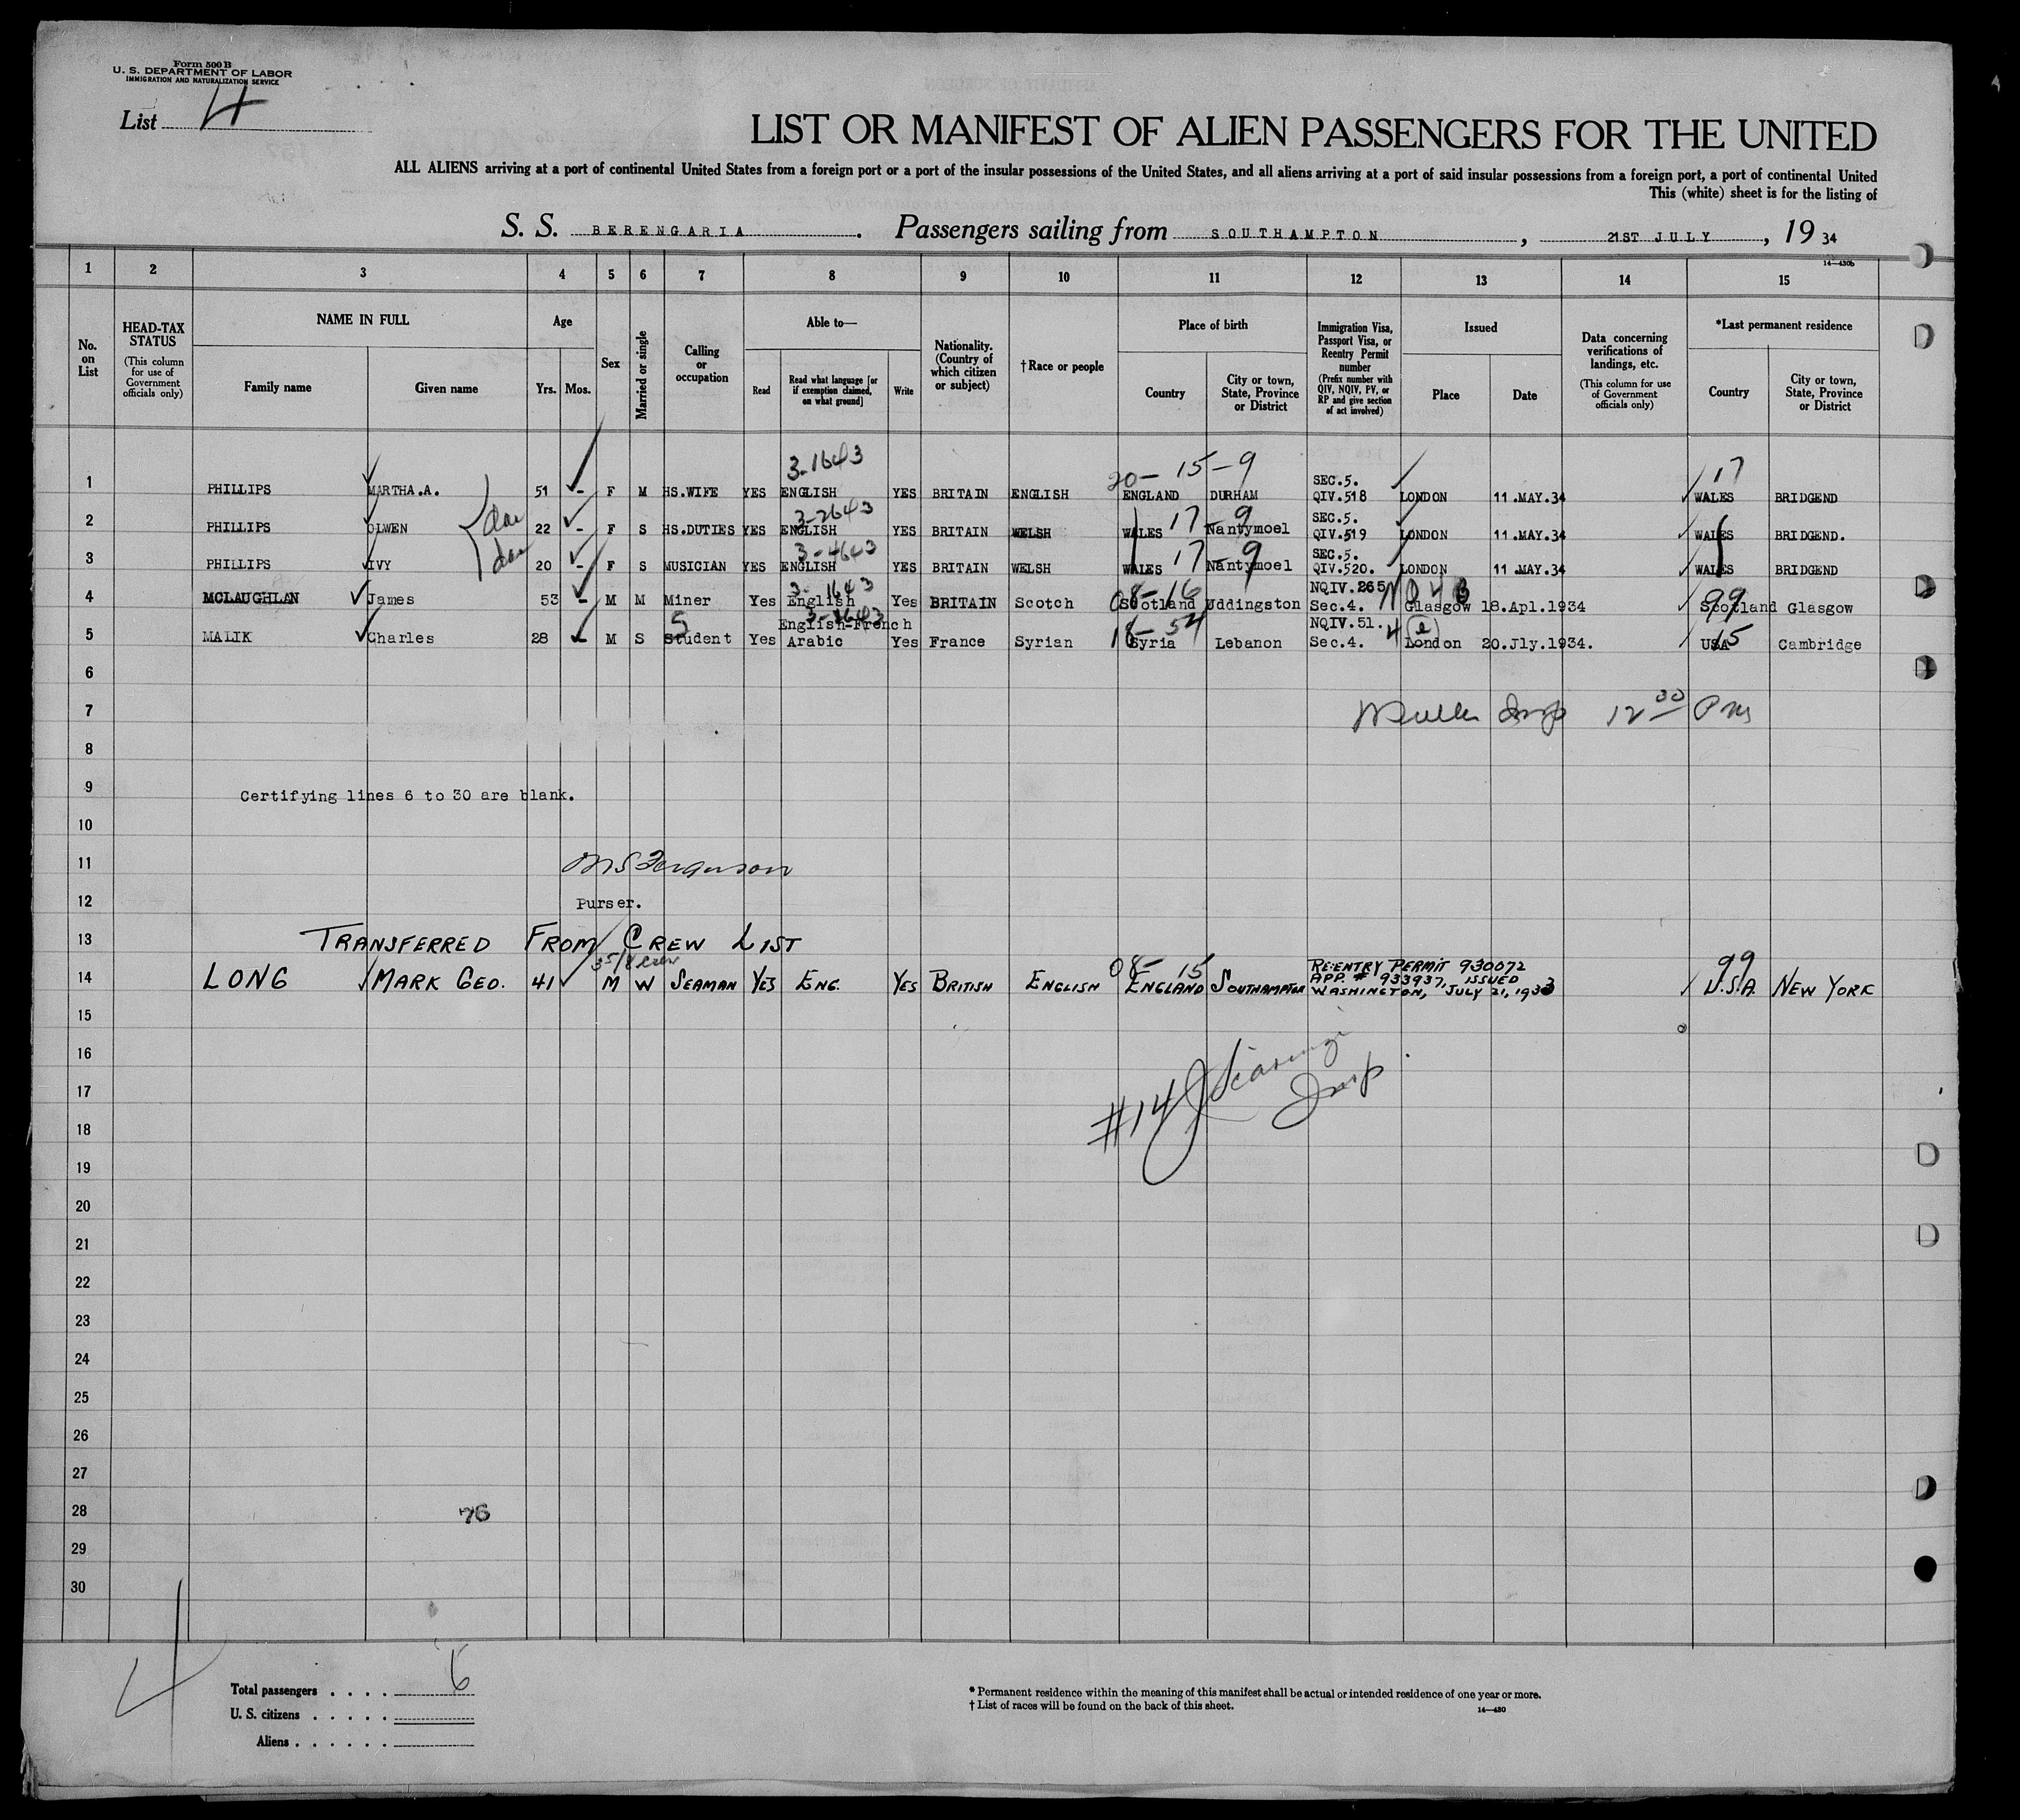 Form 500 B
U. S. DEPARTMENT OF LABOR
IMMIGRATION AND NATURALIZATION SERVICE
List 4
LIST OR MANIFEST OF ALIEN PASSENGERS FOR THE UNITED
ALL ALIENS arriving at a port of continental United States from a foreign port or a port of the insular possessions of the United States, and all aliens arriving at a port of said insular possessions from a foreign port, a port of continental United
This (white) sheet is for the listing of
S. S. BERENGARIA. Passengers sailing from SOUTHAMPTON, 21ST JULY, 19 34
14—430b
1 2 3 4 5 6 7 8 9 10 11 12 13 14 15
No. on List
HEAD-TAX STATUS
(This column for use of Government officials only)
NAME IN FULL
Family name Given name
Age
Yrs. Mos.
Sex
Married or single
Calling or occupation
Able to—
Read
Read what language [or if exemption claimed, on what ground]
Write
Nationality. (Country of which citizen or subject)
† Race or people
Place of birth
Country
City or town, State, Province or District
Immigration Visa, Passport Visa, or Reentry Permit number
(Prefix number with QIV, NQIV, PV, or RP and give section of act involved)
Issued
Place Date
Data concerning verifications of landings, etc.
(This column for use of Government officials only)
*Last permanent residence
Country
City or town, State, Province or District
3-1643 20- 15-9 SEC.5. 17
1 PHILLIPS MARTHA.A. 51 - F M HS.WIFE YES ENGLISH YES BRITAIN ENGLISH ENGLAND DURHAM QIV.518 LONDON 11.MAY.34 WALES BRIDGEND
dau 3-2643 17-9 SEC.5.
2 PHILLIPS OLWEN 22 - F S HS.DUTIES YES ENGLISH YES BRITAIN WELSH WALES Nantymoel QIV.519 LONDON 11.MAY.34 WALES BRIDGEND.
dau 3-4643 17-9 SEC.5.
3 PHILLIPS IVY 20 - F S MUSICIAN YES ENGLISH YES BRITAIN WELSH WALES Nantymoel QIV.520. LONDON 11.MAY.34 WALES BRIDGEND
3-1643 08-16 NQIV.265 99
4 MCLAUGHLAN James 53 - M M Miner Yes English Yes BRITAIN Scotch Scotland Uddingston Sec.4. Glasgow 18.Apl.1934 Scotland Glasgow
S English-French 18-54 NQIV.51. 4 (e) 15
5 MALIK Charles 28 - M S Student Yes Arabic Yes France Syrian Syria Lebanon Sec.4. London 20.Jly.1934. USA Cambridge
6
7 Insp 12 00 PM
8
9 Certifying lines 6 to 30 are blank.
10
11 Ferguson
12 Purser.
13 TRANSFERRED FROM CREW LIST
08- 15 RE-ENTRY PERMIT 930072 99
14 LONG MARK GEO. 41 M W SEAMAN YES ENG. YES BRITISH ENGLISH ENGLAND SOUTHAMPTON APP. # 933937, ISSUED U.S.A. NEW YORK
WASHINGTON, JULY 21, 1933
15
16
17
#14 Insp
18
19
20
21
22
23
24
25
26
27
28 76
29
30
4
Total passengers . . . . 6
U. S. citizens . . . . .
Aliens . . . . . .
* Permanent residence within the meaning of this manifest shall be actual or intended residence of one year or more.
† List of races will be found on the back of this sheet.
14—430